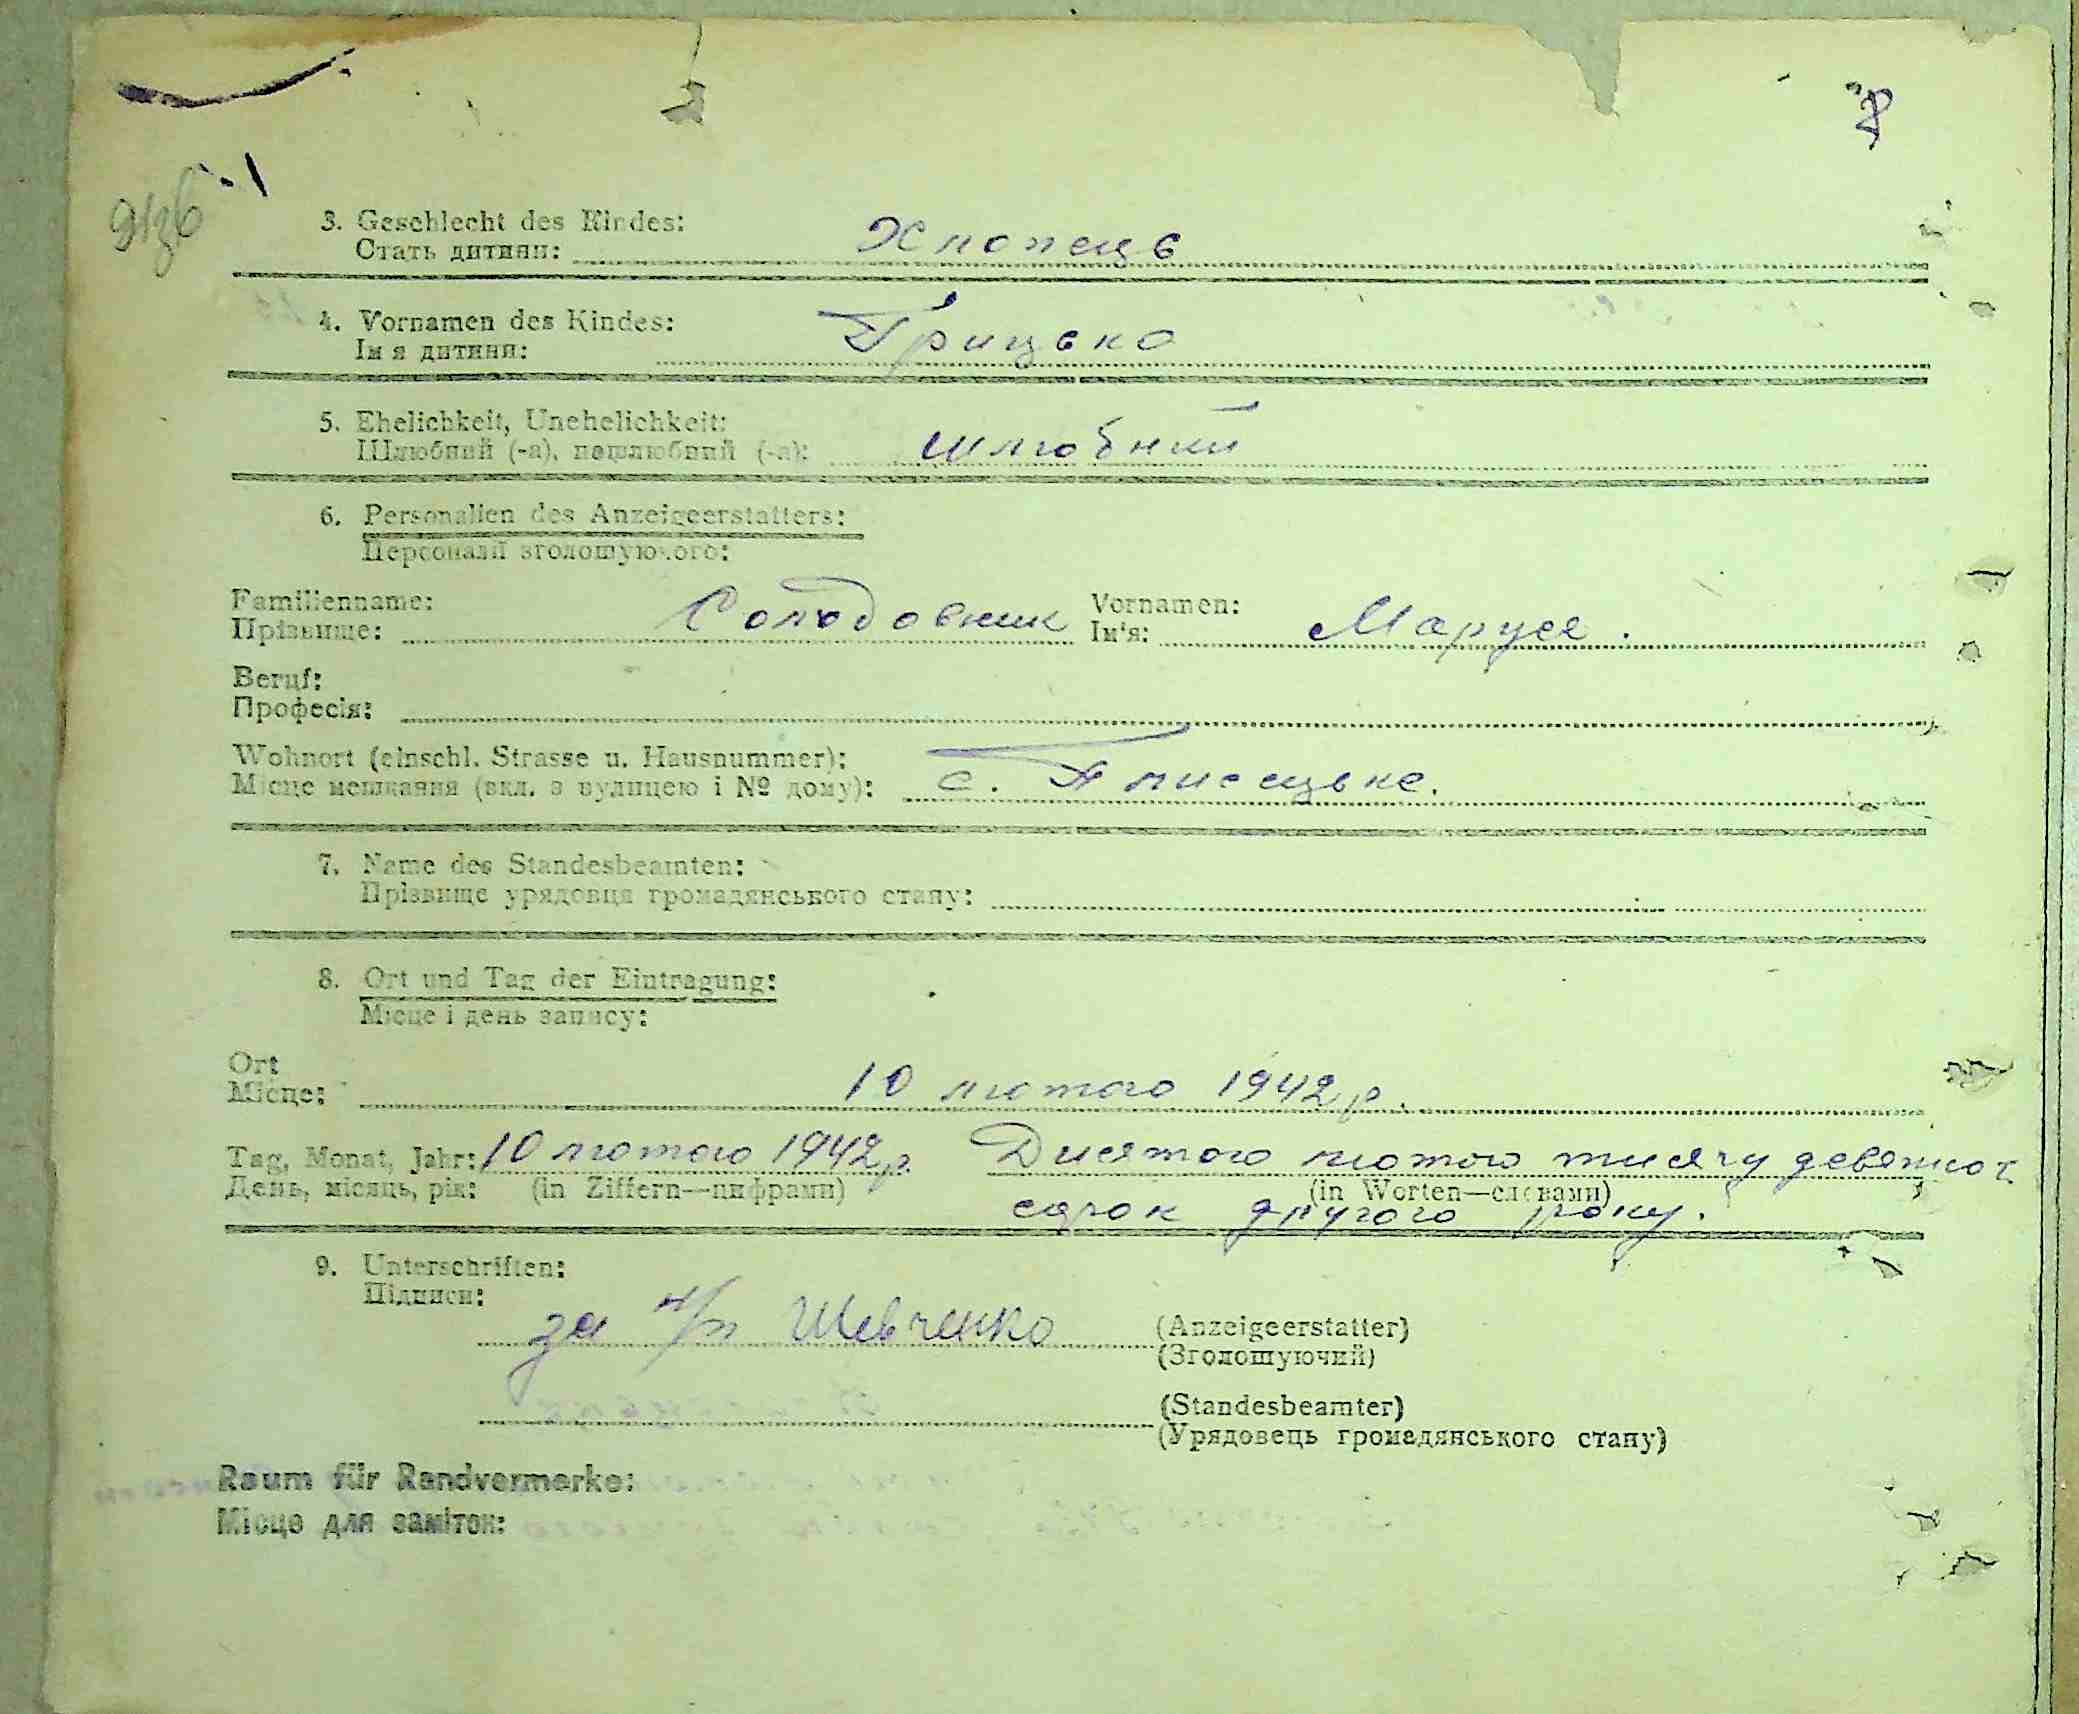 3. Geschlecht des Kindes:
Стать дитини: Хлопець
4. Vornamen des Kindes:
Імя дитини: Грицько
5. Ehelichkeit, Unehelichkeit:
Шлюбний (-а), нешлюбний (-а): шлюбний
6. Personalien des Anzeigeerstatters:
Персоналії зголошуючого:
Familienname: Vornamen:
Прізвище: Солодовник Ім'я: Маруся.
Beruf:
Професія:
Wohnort (einschl. Strasse u. Hausnummer):
Місце мешкання (вкл. з вулицею і № дому): с. Плисецьке.
7. Name des Standesbeamten:
Прізвище урядовця громадянського стану:
8. Ort und Tag der Eintragung:
Місце і день запису:
Ort
Місце: 10 лютого 1942 р.
Tag, Monat, Jahr: 10 лютого 1942 р. Дисятого лютого тисячу девятсот
День, місяць, рік: (in Ziffern—цифрами) (in Worten—словами)
сорок другого року.
9. Unterschriften:
Підписи:
за н/п Шевченко (Anzeigeerstatter)
(Зголошуючий)
(Standesbeamter)
(Урядовець громадянського стану)
Raum für Randvermerke:
Місце для заміток: